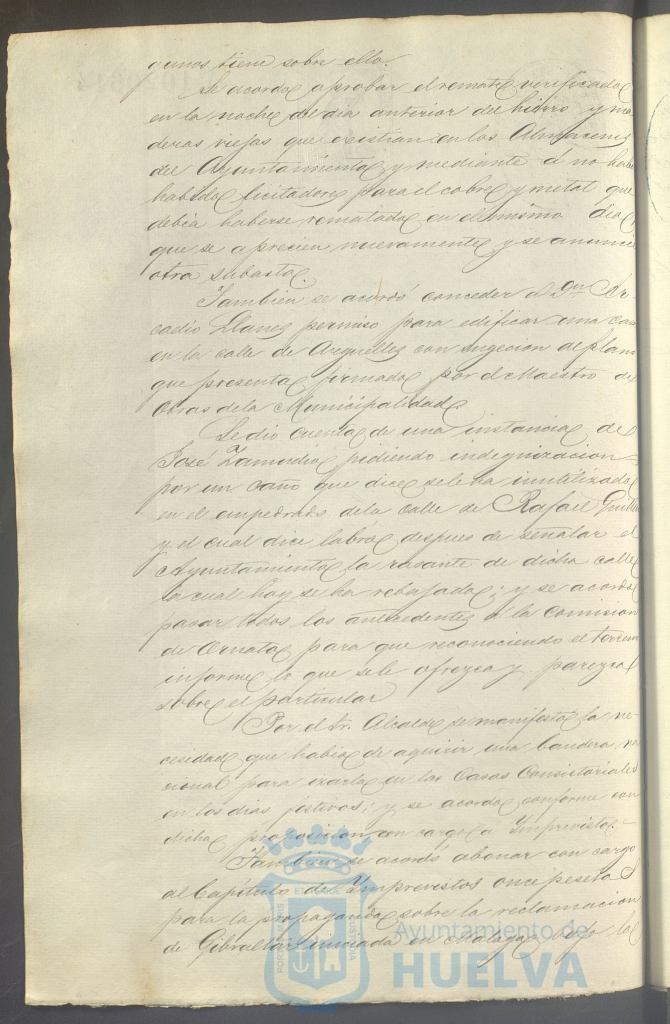 gunos tiene sobre ello.
Se acordo aprobar el remate verificado
en la noche de dia anterior del hierro y ma
deras viejas que existian en los Almacenes
del Ayuntamiento y mediante á no habe
habido licitadores para el cobre y metal que
debia haberse rematado en el mismo dia,
que se aprecien nuevamente y se anuncie
otra subasta.
Tambien se acordó conceder á Dn Ar-
cadio Llanes permiso para edificar una casa
en la calle de Arguelles con sugecion al plano
que presenta firmado por el Maestro de
Obras de la Municipalidad
Se dio cuenta de una instancia de
José Zamudio pidiendo indegnizacion
por un caño que dice se le ha inutilizado
en el empedrado de la calle de Rafael
y el cual dice labro despues de señalar el
Ayuntamiento la rasante de dicha calle
la cual hoy se ha rebajado; y se acordo
pasar todos los antecedentes á la Comision
de Ornato para que reconociendo el terreno
informe lo que se le ofrezca y parezca
sobre el particular
Por el Sr. Alcalde se manifesto la ne-
cesidad que habia de aquirir una bandera na
cional para izarla en las Casas Consistoriales
en los dias festivos; y se acordo conforme con
dicha proposicion con cargo á Imprevistos.-
Tambien se acordó abonar con cargo
al Capítulo de Imprevistos once pesetas
para la propaganda sobre la reclamacion
de Gibraltar iniciada en Malaga bajo la
Ayuntamiento de
HUELVA